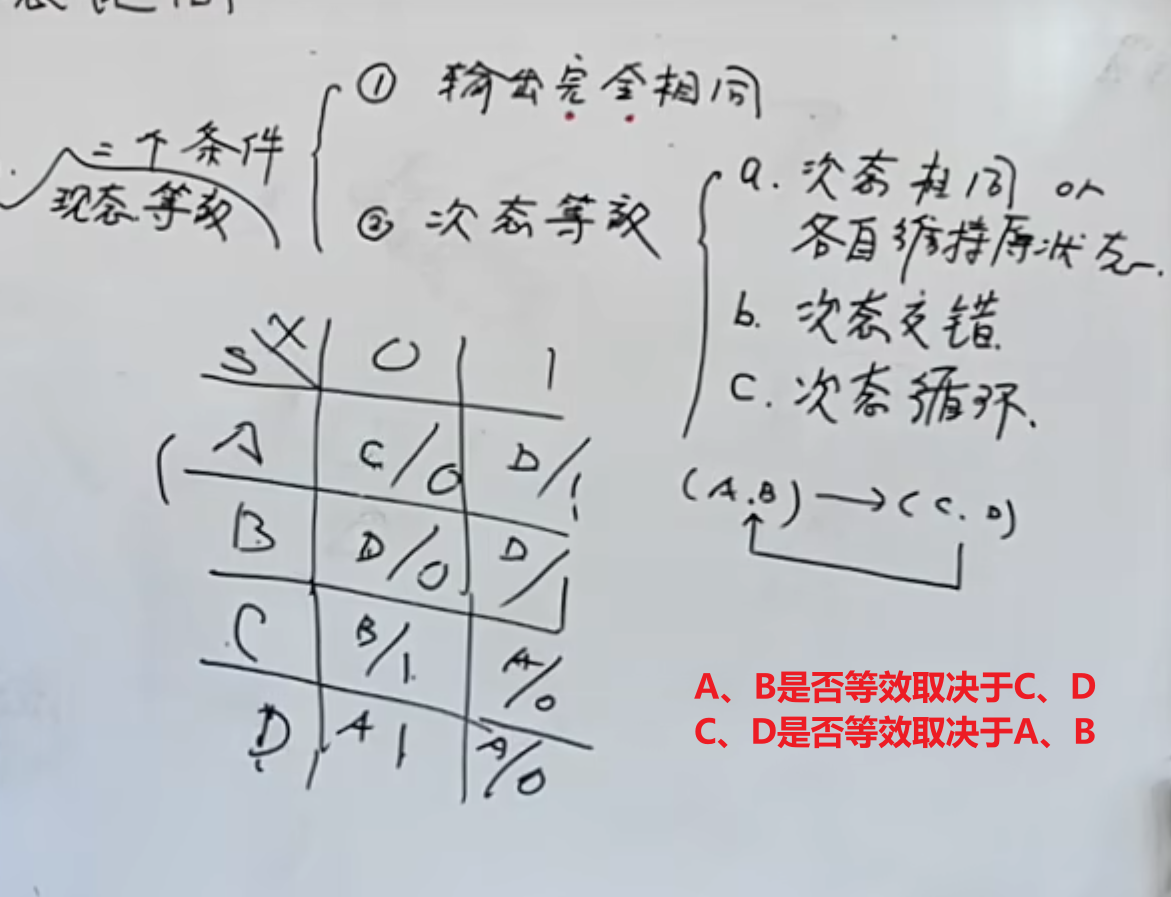 二个条件
现态等效
① 输出完全相同
② 次态等效
a. 次态相同 or
各自维持原状态.
b. 次态交错.
c. 次态循环.
S X 0 1
A C/0 D/1
B D/0 D/1
C B/1 A/0
D A 1 A/0
(A.B) → (C.D)
A、B是否等效取决于C、D
C、D是否等效取决于A、B